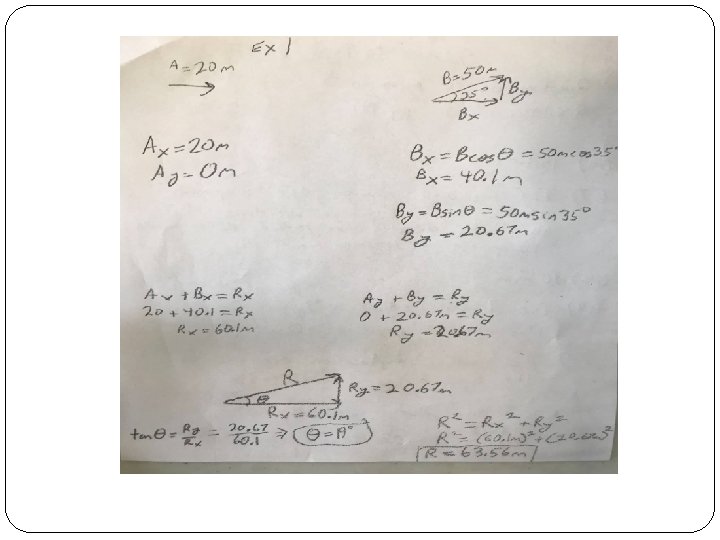 Ex 1
A = 20 m
B = 50 m
35°
By
Bx
Ax = 20m
Ay = 0m
Bx = Bcosθ = 50m cos 35°
Bx = 40.1 m
By = Bsinθ = 50m sin 35°
By = 20.67m
Ax + Bx = Rx
20 + 40.1 = Rx
Rx = 60.1m
Ay + By = Ry
0 + 20.67m = Ry
Ry = 20.67m
R
θ
Ry = 20.67m
Rx = 60.1m
tan θ = Ry/Rx = 20.67/60.1 ⇒
R² = Rx² + Ry²
R² = (60.1m)² + (20.67m)²
R = 63.56m